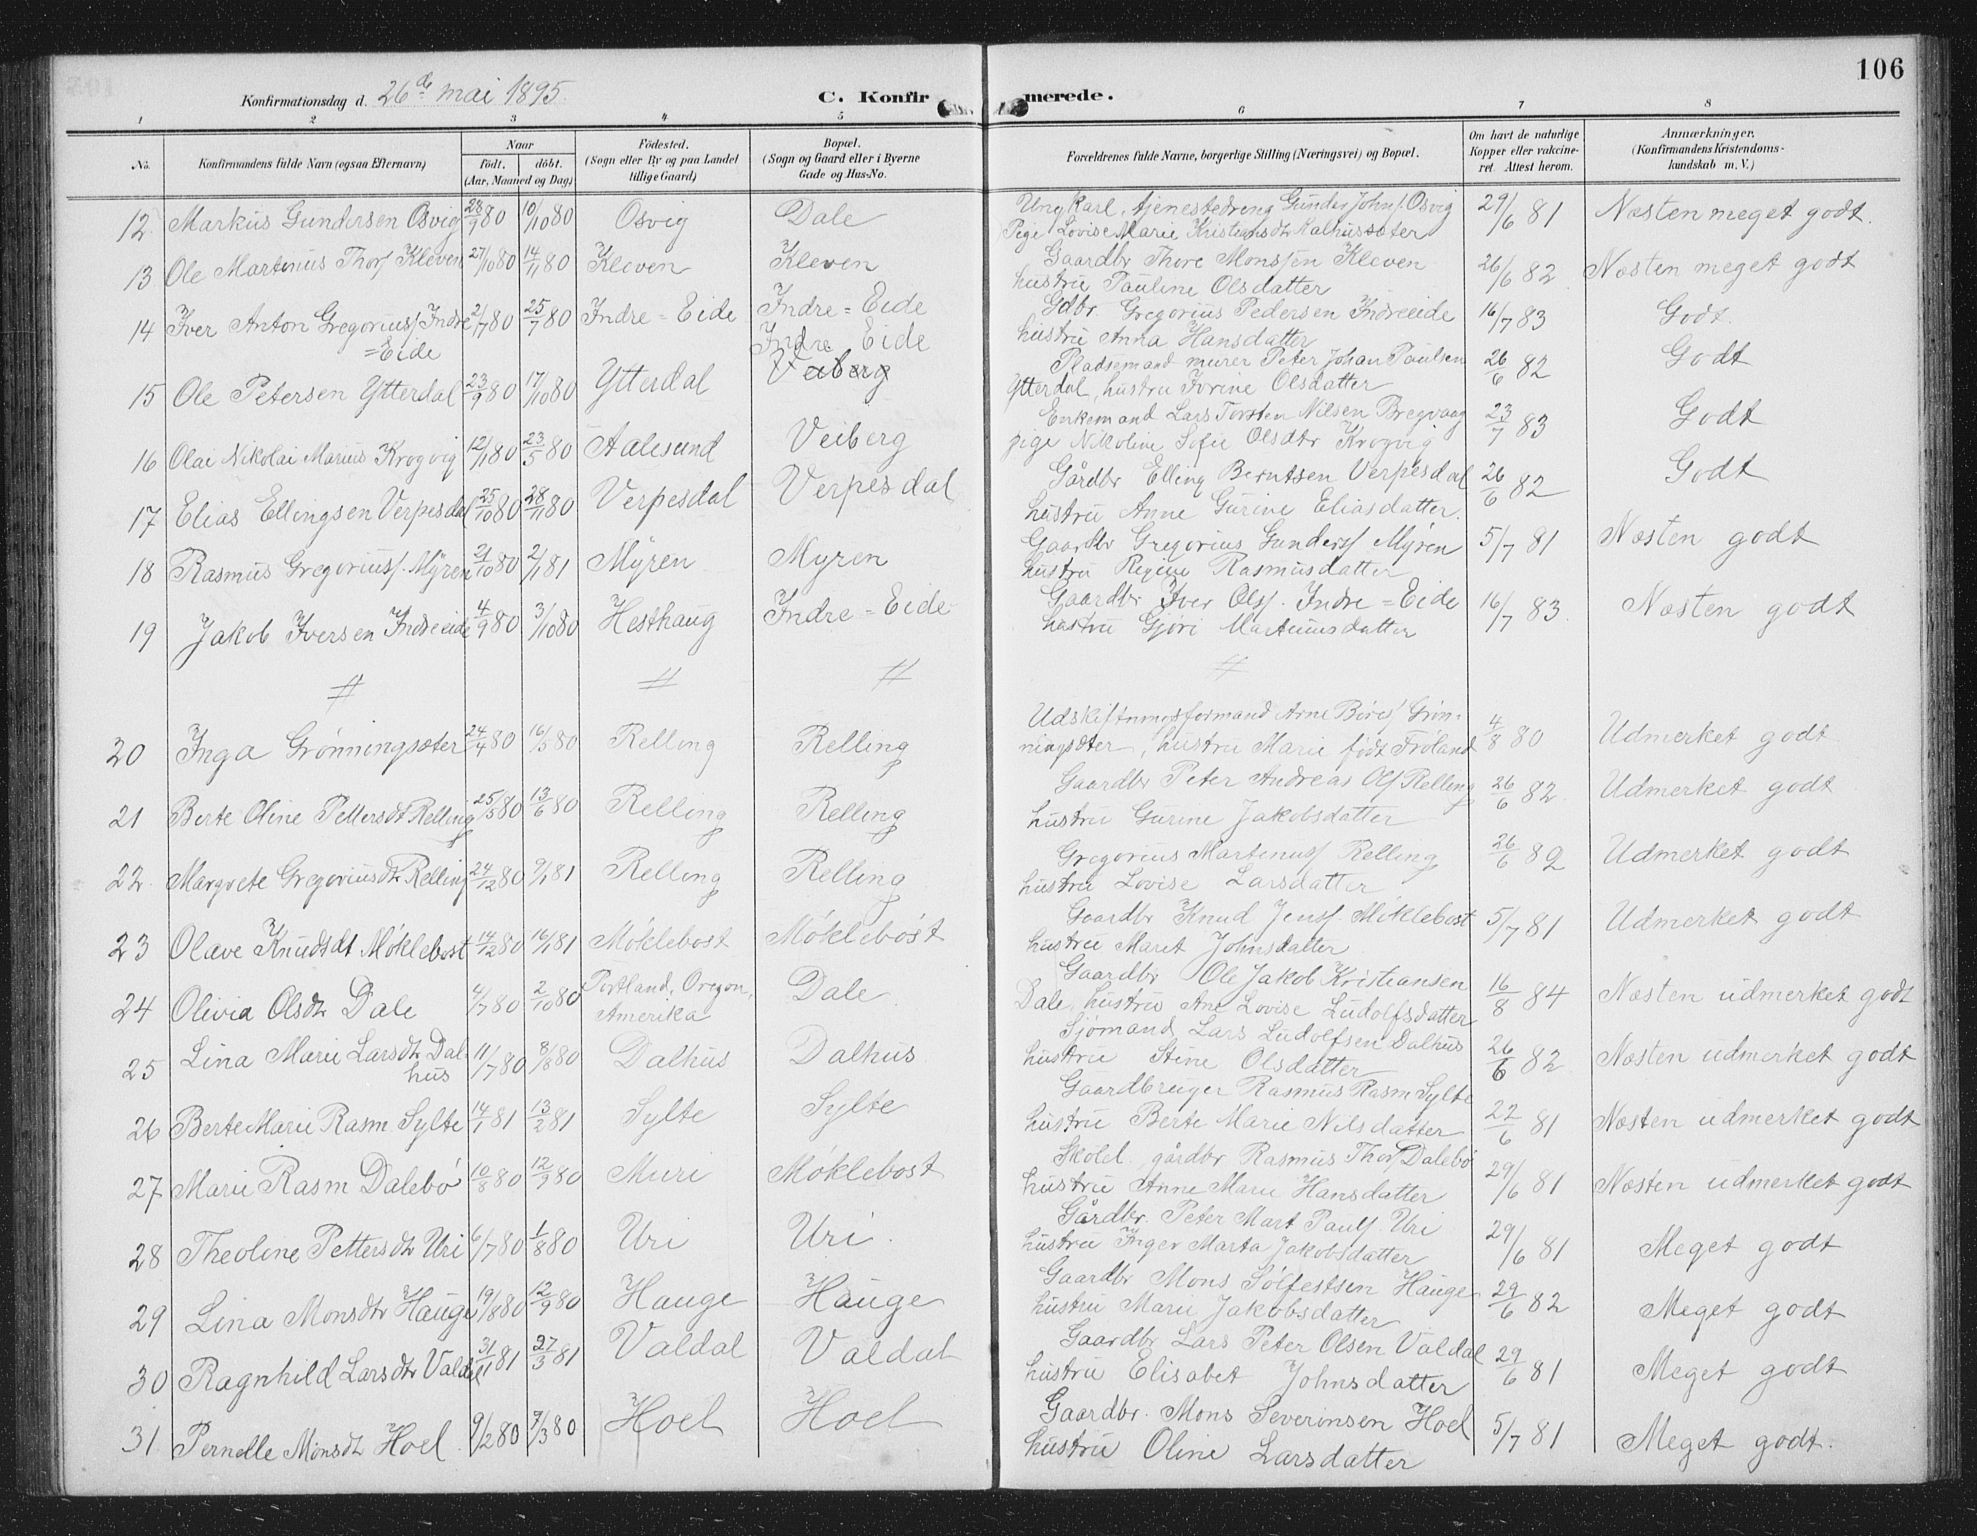 106
Konfirmationsdag d. 26de mai 1895. C. Konfirmerede.
1 2 3 4 5 6 7 8
No. Konfirmandens fulde Navn (ogsaa Efternavn) Naar født. døbt. (Aar, Maaned og Dag) Fødested. (Sogn eller By og paa Landet tillige Gaard) Bopæl. (Sogn og Gaard eller i Byerne Gade og Hus-No. Forældrenes fulde Navne, borgerlige Stilling (Næringsvei) og Bopæl. Om havt de naturlige Kopper eller vaccineret. Attest herom. Anmærkninger. (Konfirmandens Kristendomskundskab m. V.)
12 Markus Gundersen Osvig 28/9 80 10/10 80 Osvig Dale Ungkarl, tjenestedreng Gunder Johns. Osvig 29/6 81 Næsten meget godt.
Pige Lovise Marie Kristiansdtr Kalhussæter
13 Ole Martinius Thors Kleven 27/10 80 14/11 80 Kleven Kleven Gaardbr Thore Monssen Kleven 26/6 82 Næsten meget godt
hustru Pauline Olsdatter
14 Iver Anton Gregorius. Indre 2/7 80 25/7 80 Indre=Eide Indre=Eide Gdbr. Gregorius Pedersen Indreeide 16/7 83 Godt.
=Eide Indre Eide hustru Anna Hansdatter
15 Ole Petersen Ytterdal 23/9 80 17/10 80 Ytterdal Veiberg Pladsemand murer Peter Johan Paulsen 26/6 82 Godt
Ytterdal, hustru Jorine Olsdatter
16 Olai Nikolai Marius Krogvig 12/11 80 23/5 80 Aalesund Veiberg Enkemand Lars Torsten Nilsen Bregvaag 23/7 83 Godt
pige Nikoline Sofie Olsdtr Krogvig
17 Elias Ellingsen Verpesdal 25/10 80 28/11 80 Verpesdal Verpesdal Gårdbr Elling Berntsen Verpesdal 26/6 82 Godt
hustru Anne Gurine Eliasdatter.
18 Rasmus Gregorius. Myren 21/10 80 2/1 81 Myren Myren Gaardbr Gregorius Gunders Myren 5/7 81 Næsten godt
hustru Regine Rasmusdatter
19 Jakob Iversen Indreeide 4/9 80 3/10 80 Hesthaug Indre=Eide Gaardbr Iver Ols. Indre=Eide 16/7 83. Næsten godt
hustru Gjøri Martinusdatter
# # # #
20 Inga Grønningsæter 24/4 80 16/5 80 Relling Relling Udskiftningsformand Arne Børes Grøn- 4/8 80 Udmerket godt
ningsæter, hustru Marie født Frøland
21 Berte Oline Pettersdt Relling 25/5 80 13/6 80 Relling Relling Gaardbr Peter Andreas Ols Relling 26/6 82. Udmerket godt
hustru Gurine Jakobsdatter
22. Margrete Gregoriusdtr Relling 24/12 80 9/1 81 Relling Relling Gregorius Martinus Relling 26/6 82 Udmerket godt
hustru Lovise Larsdatter
23 Olave Knudsdt Møklebost 14/12 80 16/1 81 Møklebost Møklebøst Gaardbr Knud Jens Møklebost 5/7 81 Udmerket godt
hustru Maret Johnsdatter
24 Olivia Olsdtr Dale 4/7 80 2/10 80 Portland, Oregon, Dale Gaardbr Ole Jakob Kristiansen 16/8 84 Næsten udmerket godt
Amerika Dale, hustru Ane Lovise Ludolfsdatter
25 Lina Marie Larsdtr Dal- 11/7 80 8/8 80 Dalhus Dalhus Sjømand Lars Ludolfsen Dalhus 26/6 82 Næsten udmerket godt
hus hustru Stine Olsdatter
26 Berte Marie Rasm Sylte 14/1 81 13/2 81 Sylte Sylte Gaardbruger Rasmus Rasm Sylte 22/6 81 Næsten udmerket godt
hustru Berte Marie Nilsdatter
27 Marie Rasm Dalebø 10/8 80 12/9 80 Muri Møklebost Skolel. gårdbr Rasmus Thor Dalebø 29/6 81 Næsten udmerket godt
hustru Anne Marie Hansdatter
28 Theoline Pettersdtr Uri 6/7 80 1/8 80 Uri Uri. Gårdbr. Peter Mart Pauls Uri 29/6 81 Meget godt
hustru Inger Marta Jakobsdatter
29 Lina Monsdtr Hauge 19/8 80 12/9 80 Hauge Hauge Gaardbr Mons Sølfestsen Hauge 29/6 82 Meget godt
hustru Marie Jakobsdatter
30 Ragnhild Larsdtr Valdal 31/1 81 27/3 81 Valdal Valdal Gaardbr Lars Peter Olsen Valdal 29/6 81 Meget godt
hustru Elisabet Johnsdatter
31. Pernelle Monsdtr Hoel 9/2 80 7/3 80 Hoel Hoel Gaardbr. Mons Severinsen Hoel 5/7 81 Meget godt.
hustru Oline Larsdatter